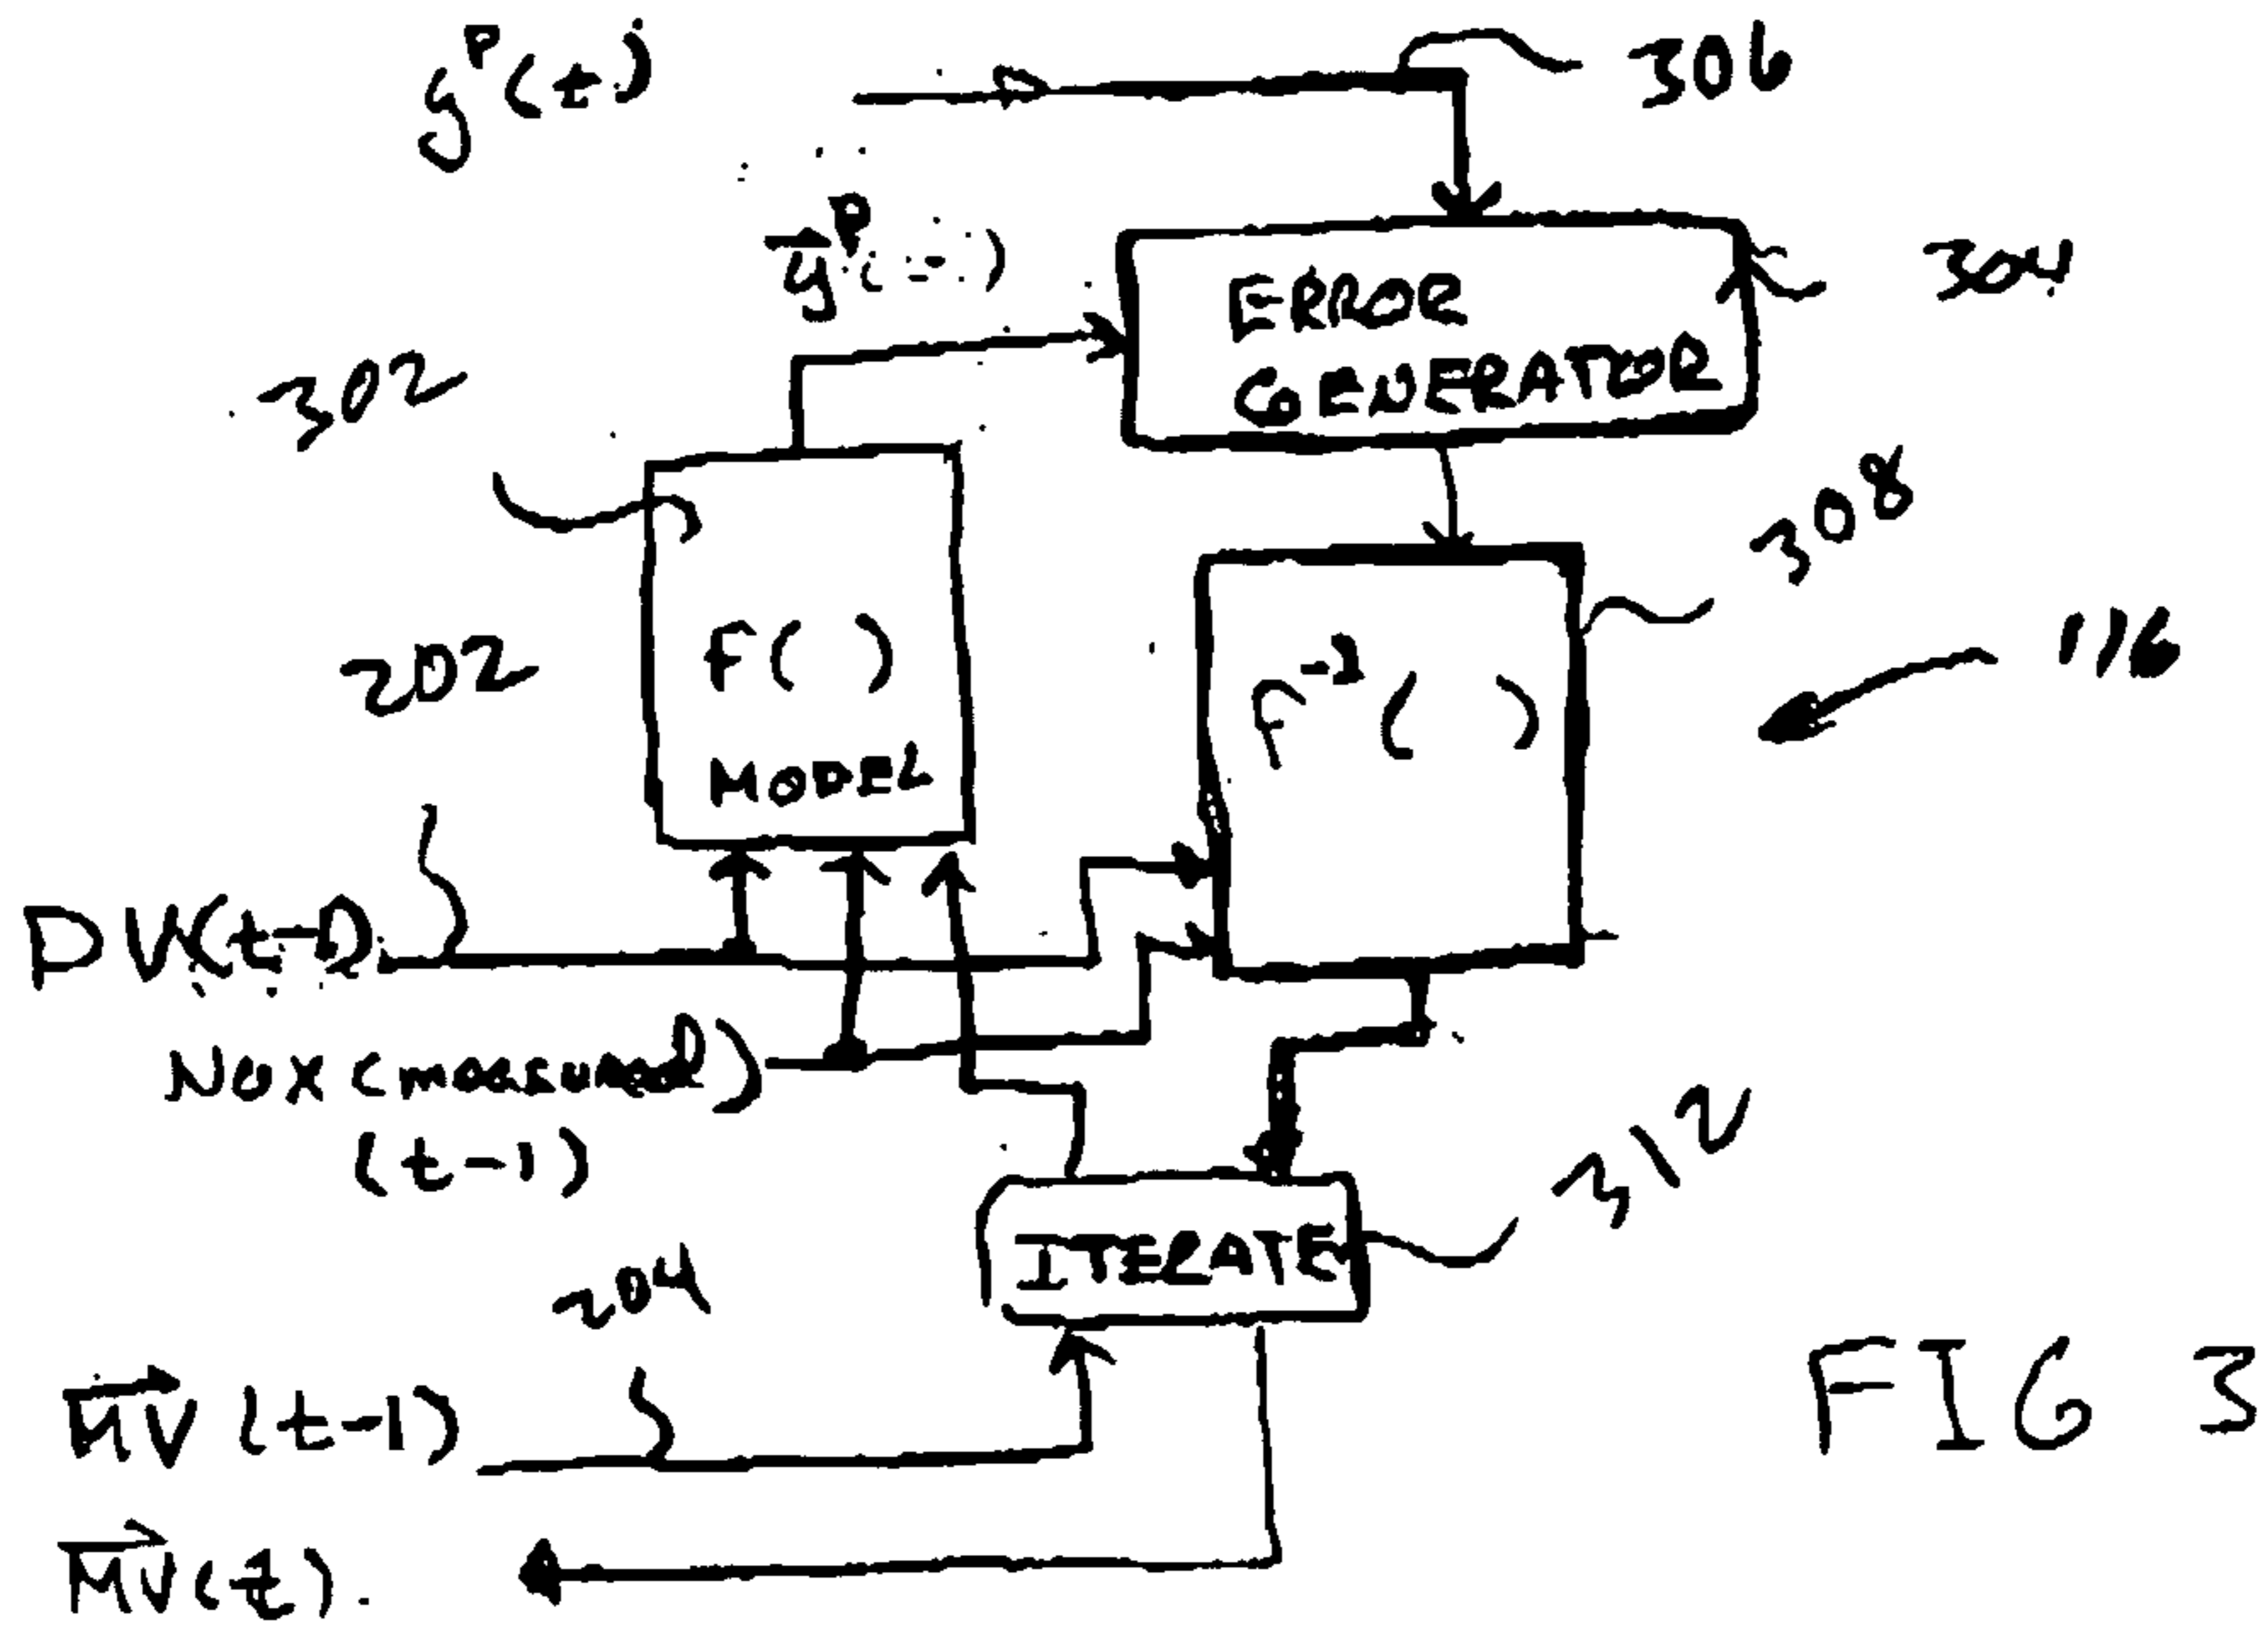 y^P(t)
306
304
ERROR
GENERATOR
302
308
202
F( )
MODEL
F^-1( )
116
DV(t-1)
NOX (measured)
(t-1)
312
ITERATE
204
MV(t-1)
MV(t).
FIG 3